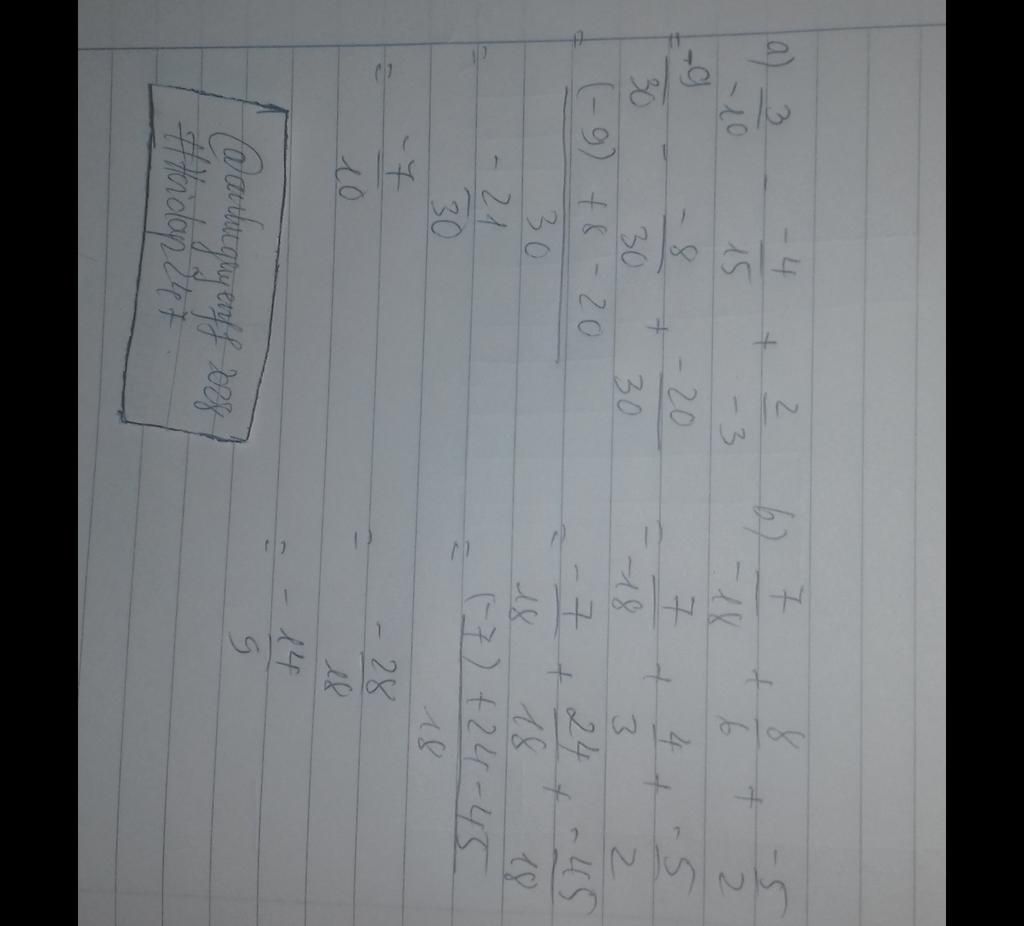 a) 3/-10 - -4/15 + 2/-3
= -9/30 - -8/30 + -20/30
= (-9) + 8 - 20 / 30
= -21/30
= -7/10
b) 7/-18 + 8/6 + -5/2
= 7/-18 + 4/3 + -5/2
= -7/18 + 24/18 + -45/18
= (-7) + 24 - 45 / 18
= -28/18
= -14/9
#Hoidap247